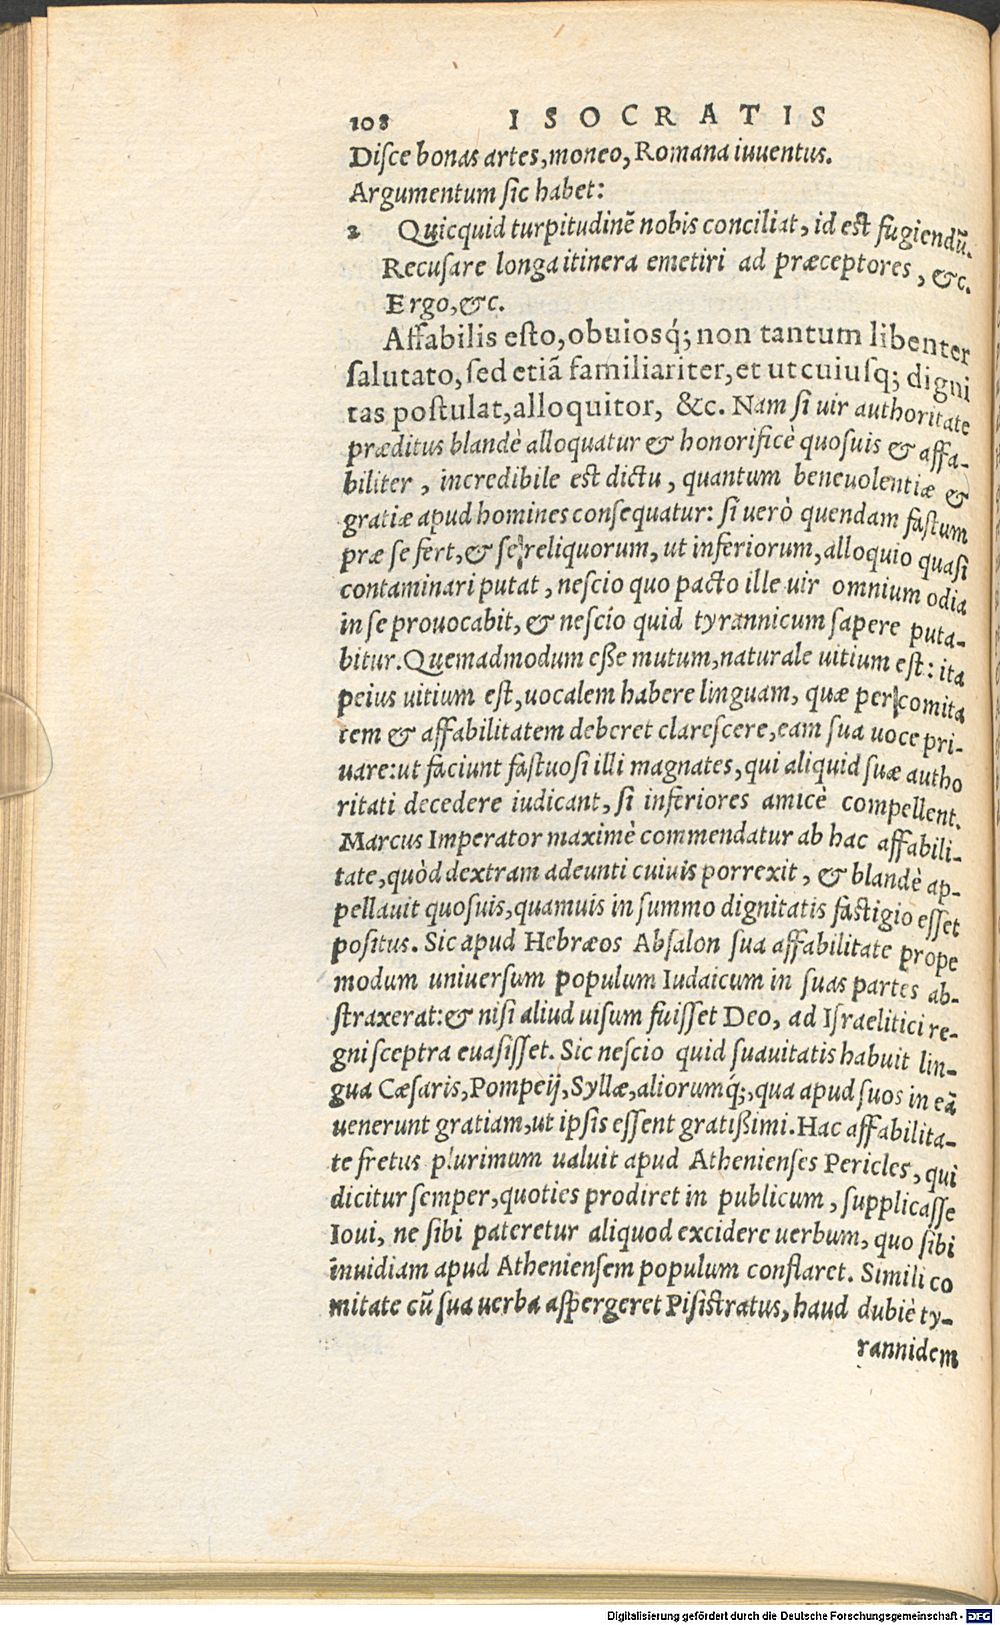 108 ISOCRATIS
Diſce bonas artes, moneo, Romana iuuentus.
Argumentum ſic habet:
2 Quicquid turpitudinē nobis conciliat, id est fugiendū.
Recuſare longa itinera emetiri ad præceptores, &c.
Ergo, &c.
Affabilis eſto, obuiosq́; non tantum libenter
ſalutato, ſed etiā familiariter, et ut cuiuſq; digni
tas poſtulat, alloquitor, &c. Nam ſi uir authoritate
præditus blandè alloquatur & honorificè quoſuis & affa-
biliter, incredibile est dictu, quantum beneuolentiæ &
gratiæ apud homines conſequatur: ſi uerò quendam faſtum
præ ſe fert, & ſe reliquorum, ut inferiorum, alloquio quaſi
contaminari putat, neſcio quo pacto ille uir omnium odia
in ſe prouocabit, & neſcio quid tyrannicum ſapere puta-
bitur. Quemadmodum eſſe mutum, naturale uitium est: ita
peius uitium est, uocalem habere linguam, quæ per comita
tem & affabilitatem deberet clareſcere, eam ſua uoce pri-
uare: ut faciunt faſtuoſi illi magnates, qui aliquid ſuæ autho
ritati decedere iudicant, ſi inferiores amicè compellent.
Marcus Imperator maximè commendatur ab hac affabili-
tate, quòd dextram adeunti cuiuis porrexit, & blandè ap-
pellauit quoſuis, quamuis in ſummo dignitatis faſtigio eſſet
poſitus. Sic apud Hebræos Abſalon ſua affabilitate prope
modum uniuerſum populum Iudaicum in ſuas partes ab-
ſtraxerat: & niſi aliud uiſum fuiſſet Deo, ad Iſraelitici re-
gni ſceptra euaſiſſet. Sic neſcio quid ſuauitatis habuit lin-
gua Cæſaris, Pompeij, Syllæ, aliorumq́;, qua apud ſuos in eā
uenerunt gratiam, ut ipſis eſſent gratißimi. Hac affabilita-
te fretus plurimum ualuit apud Athenienſes Pericles, qui
dicitur ſemper, quoties prodiret in publicum, ſupplicaſſe
Ioui, ne ſibi pateretur aliquod excidere uerbum, quo ſibi
inuidiam apud Athenienſem populum conflaret. Simili co
mitate cū ſua uerba aſpergeret Piſiſtratus, haud dubiè ty-
rannidem
Digitalisierung gefördert durch die Deutsche Forschungsgemeinschaft - DFG